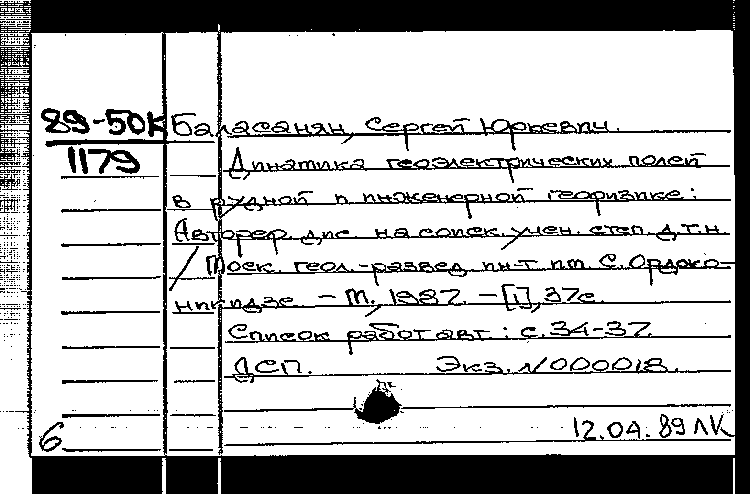 89-50К Баласанян, Сергей Юрьевич.
1179 Динамика геоэлектрических полей
в рудной и инженерной геофизике:
Автореф. дис. на соиск. учен. степ. д.т.н.
/ Моск. геол.-развед. ин-т им. С. Орджо-
никидзе. – М., 1987. – [1], 37с.
Список работ авт.: с. 34-37.
ДСП. Экз. №000018.
6 12.04.89 ЛК